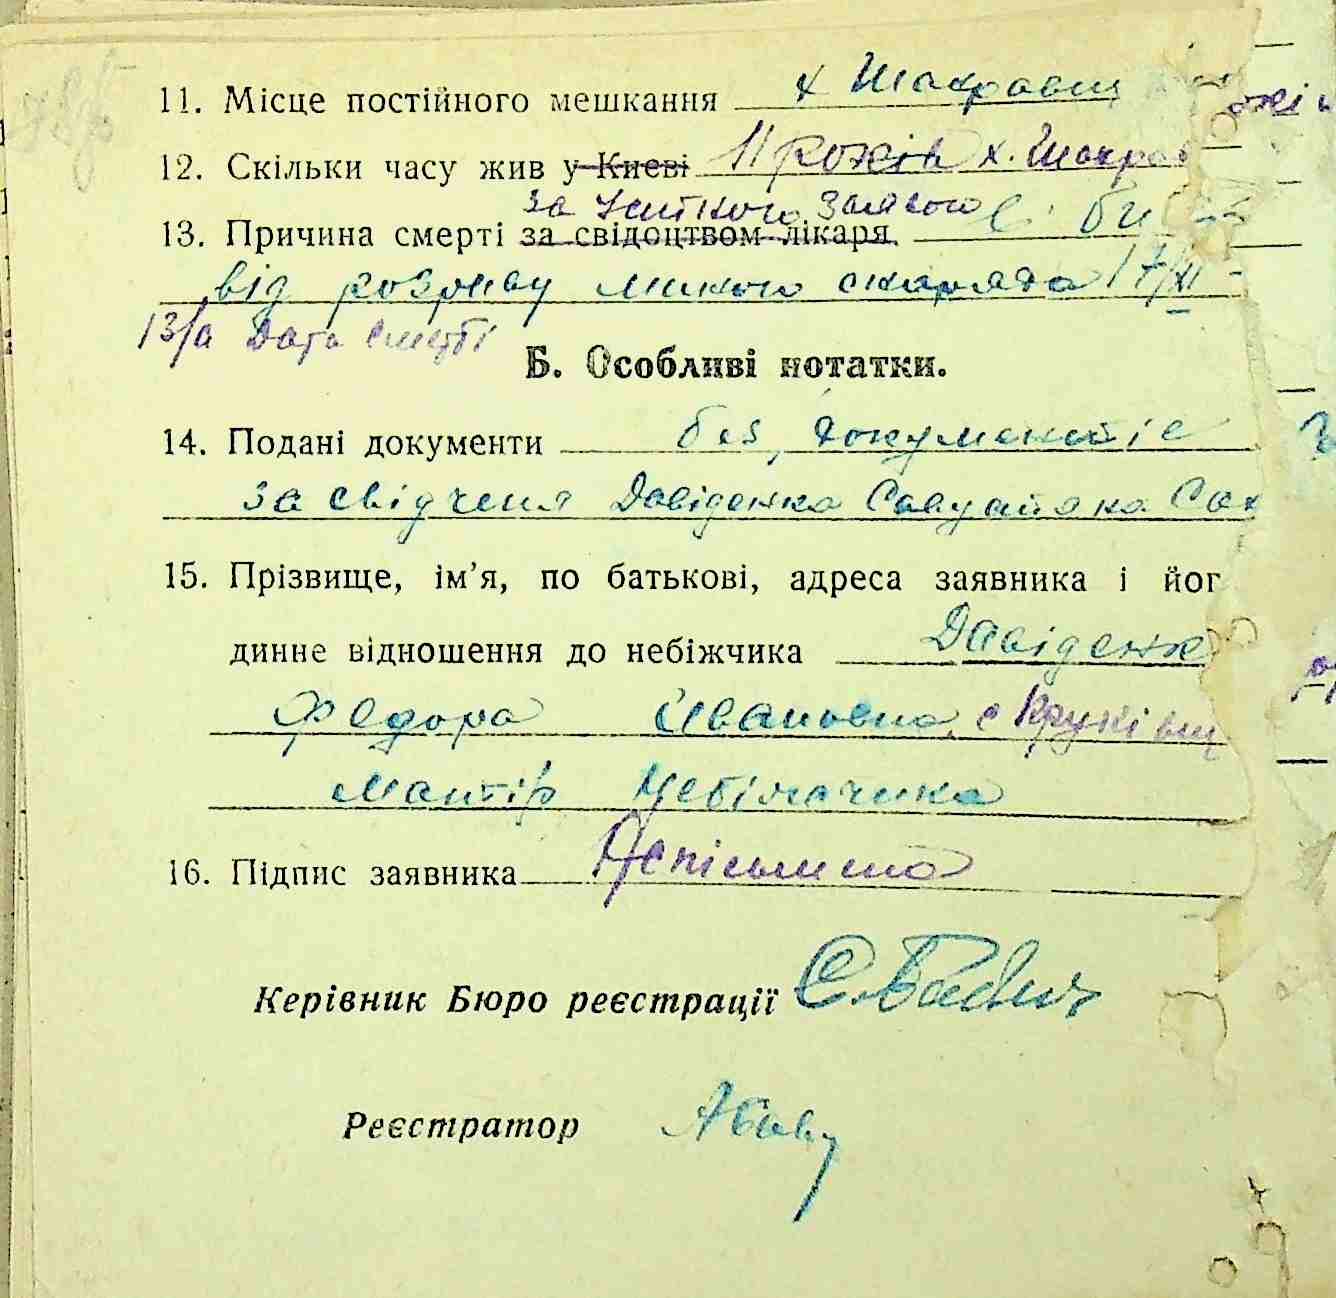 11. Місце постійного мешкання х Шакравщ
12. Скільки часу жив у Києві 11 років х. Шакрав
за устною заявою
13. Причина смерті за свідоцтвом лікаря
від розриву скаряда 17/XI -
13/а Дата смерті
Б. Особливі нотатки.
14. Подані документи без документів
за свідченя Давіденка
15. Прізвище, ім'я, по батькові, адреса заявника і йог
динне відношення до небіжчика Давіденк
Федора Івановна с Круківщ
матір небіжчика
16. Підпис заявника Неписьмена
Керівник Бюро реєстрації
Реєстратор